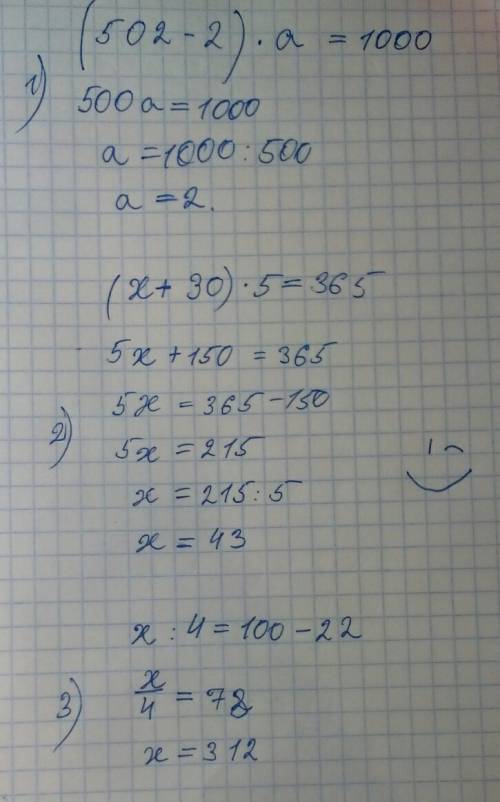 (502-2)·a = 1000
1) 500a = 1000
a = 1000:500
a = 2.
(x + 30)·5 = 365
5x + 150 = 365
5x = 365 - 150
2) 5x = 215
x = 215:5
x = 43
x : 4 = 100 - 22
3) x/4 = 78
x = 312